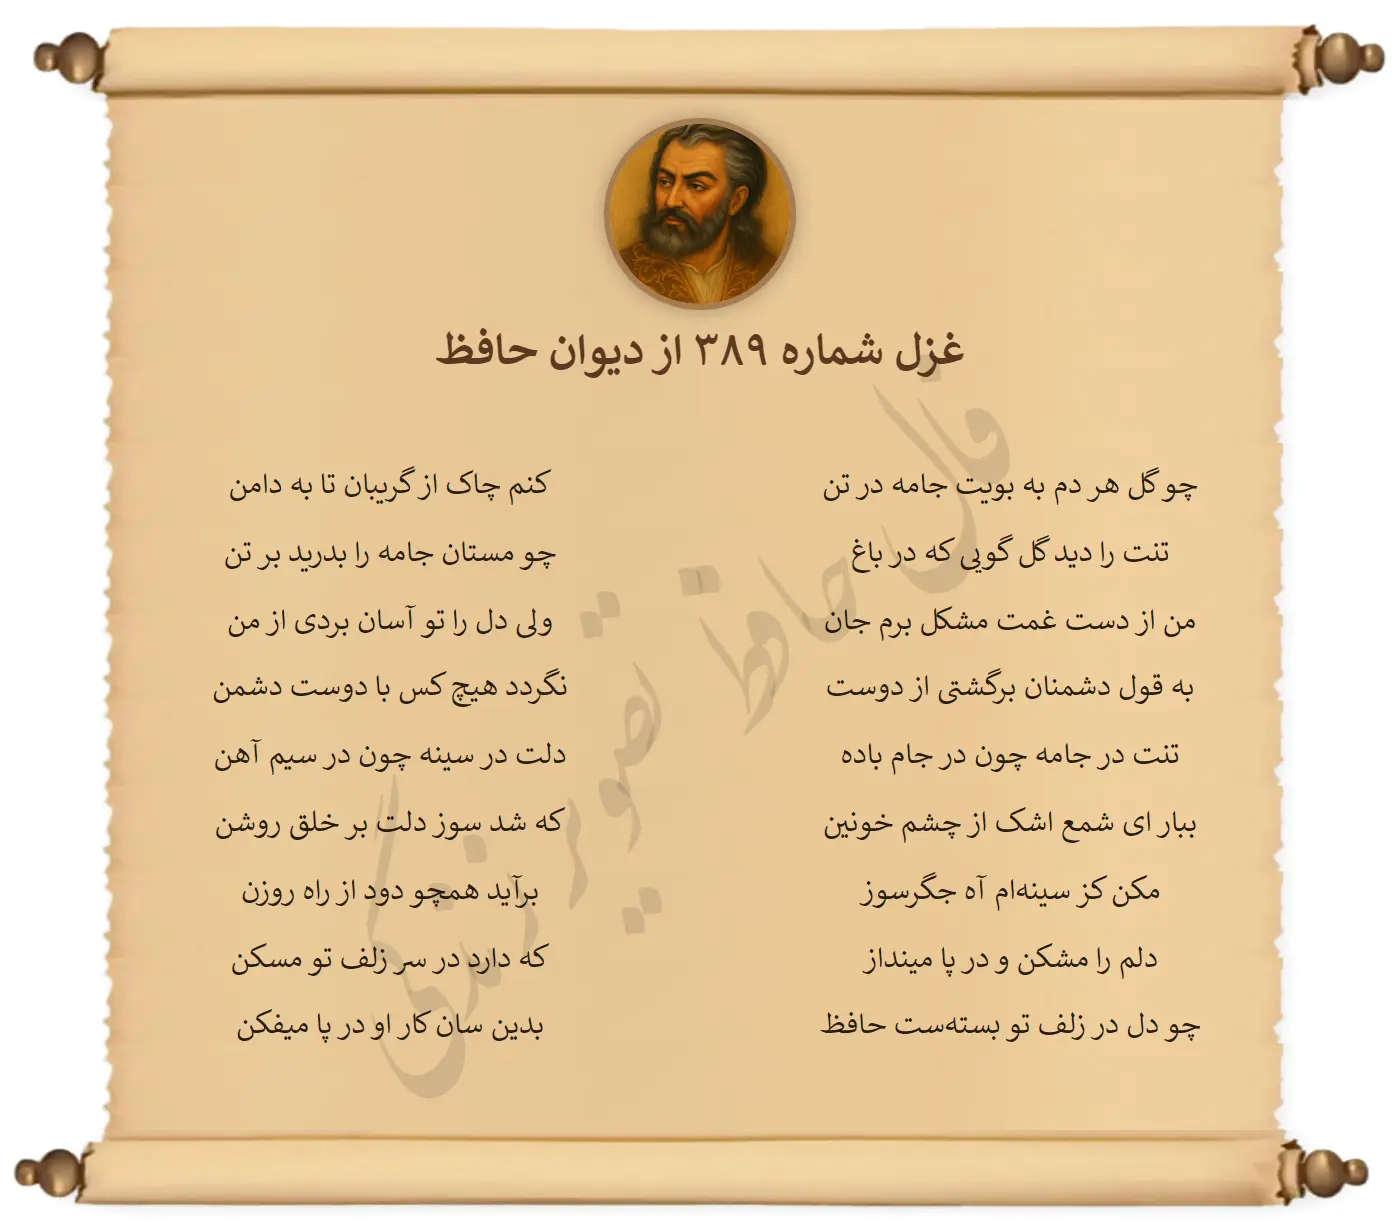 غزل شماره ۳۸۹ از دیوان حافظ
چو گل هر دم به بویت جامه در تن
کنم چاک از گریبان تا به دامن
تنت را دید گل گویی که در باغ
چو مستان جامه را بدرید بر تن
من از دست غمت مشکل برم جان
ولی دل را تو آسان بردی از من
به قول دشمنان برگشتی از دوست
نگردد هیچ کس با دوست دشمن
تنت در جامه چون در جام باده
دلت در سینه چون در سیم آهن
ببار ای شمع اشک از چشم خونین
که شد سوز دلت بر خلق روشن
مکن کز سینه‌ام آه جگرسوز
برآید همچو دود از راه روزن
دلم را مشکن و در پا مینداز
که دارد در سر زلف تو مسکن
چو دل در زلف تو بسته‌ست حافظ
بدین سان کار او در پا میفکن
فال حافظ تصویر زندگی